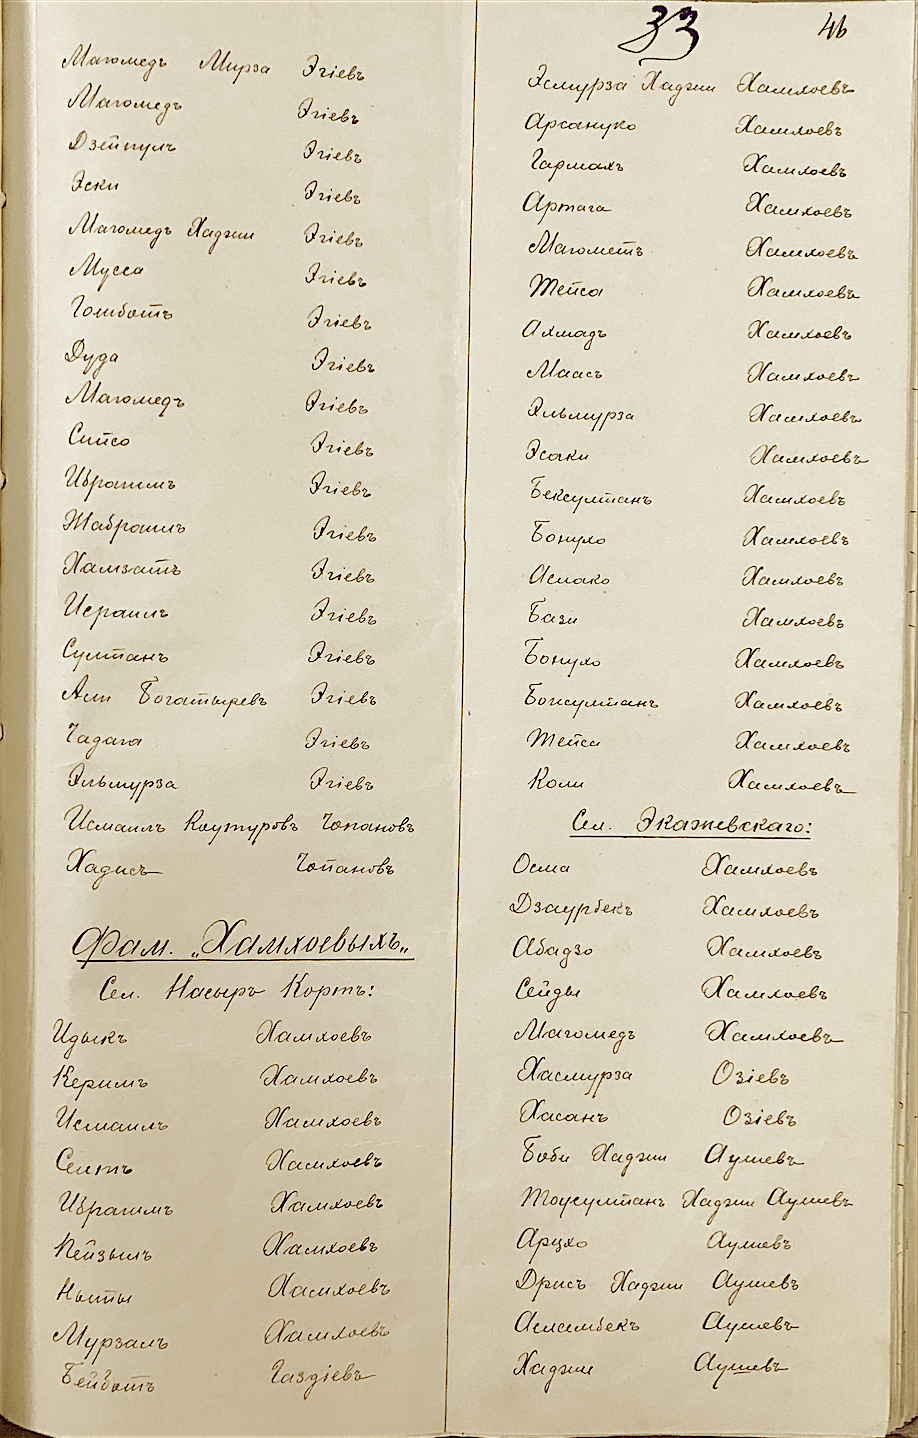 33
46
Магомедъ Мирза Эгіевъ
Магомедъ Эгіевъ
Дзейпулъ Эгіевъ
Эски Эгіевъ
Магомедъ Хаджи Эгіевъ
Мусса Эгіевъ
Гомботъ Эгіевъ
Дуда Эгіевъ
Магомедъ Эгіевъ
Сипсо Эгіевъ
Ибрагимъ Эгіевъ
Жабраилъ Эгіевъ
Хамзатъ Эгіевъ
Исраилъ Эгіевъ
Султанъ Эгіевъ
Али Богатыревъ Эгіевъ
Чадага Эгіевъ
Эльмурза Эгіевъ
Исмаилъ Каутуровъ Чопановъ
Хадисъ Чопановъ
Фам. „Хамхоевыхъ„
Сел. Насыръ Кортъ:
Идыкъ Хамхоевъ
Керимъ Хамхоевъ
Исмаилъ Хамхоевъ
Сеитъ Хамхоевъ
Ибрагимъ Хамхоевъ
Пейзылъ Хамхоевъ
Ныты Хамхоевъ
Мурзалъ Хамхоевъ
Бейботъ Газдіевъ
Эсмурза Хаджи Хамхоевъ
Арсануко Хамхоевъ
Гармахъ Хамхоевъ
Артага Хамхоевъ
Магометъ Хамхоевъ
Тейса Хамхоевъ
Ахмадъ Хамхоевъ
Маасъ Хамхоевъ
Эльмурза Хамхоевъ
Эсаки Хамхоевъ
Бексултанъ Хамхоевъ
Бонухо Хамхоевъ
Аслако Хамхоевъ
Бази Хамхоевъ
Бонухо Хамхоевъ
Боксултанъ Хамхоевъ
Тейси Хамхоевъ
Коли Хамхоевъ
Сел. Экажевскаго:
Осма Хамхоевъ
Дзаурбекъ Хамхоевъ
Абадзо Хамхоевъ
Сейды Хамхоевъ
Магомедъ Хамхоевъ
Хасмурза Озіевъ
Хасанъ Озіевъ
Боби Хаджи Аушевъ
Тоусултанъ Хаджи Аушевъ
Арцхо Аушевъ
Дрисъ Хаджи Аушевъ
Асламбекъ Аушевъ
Хаджи Аушевъ